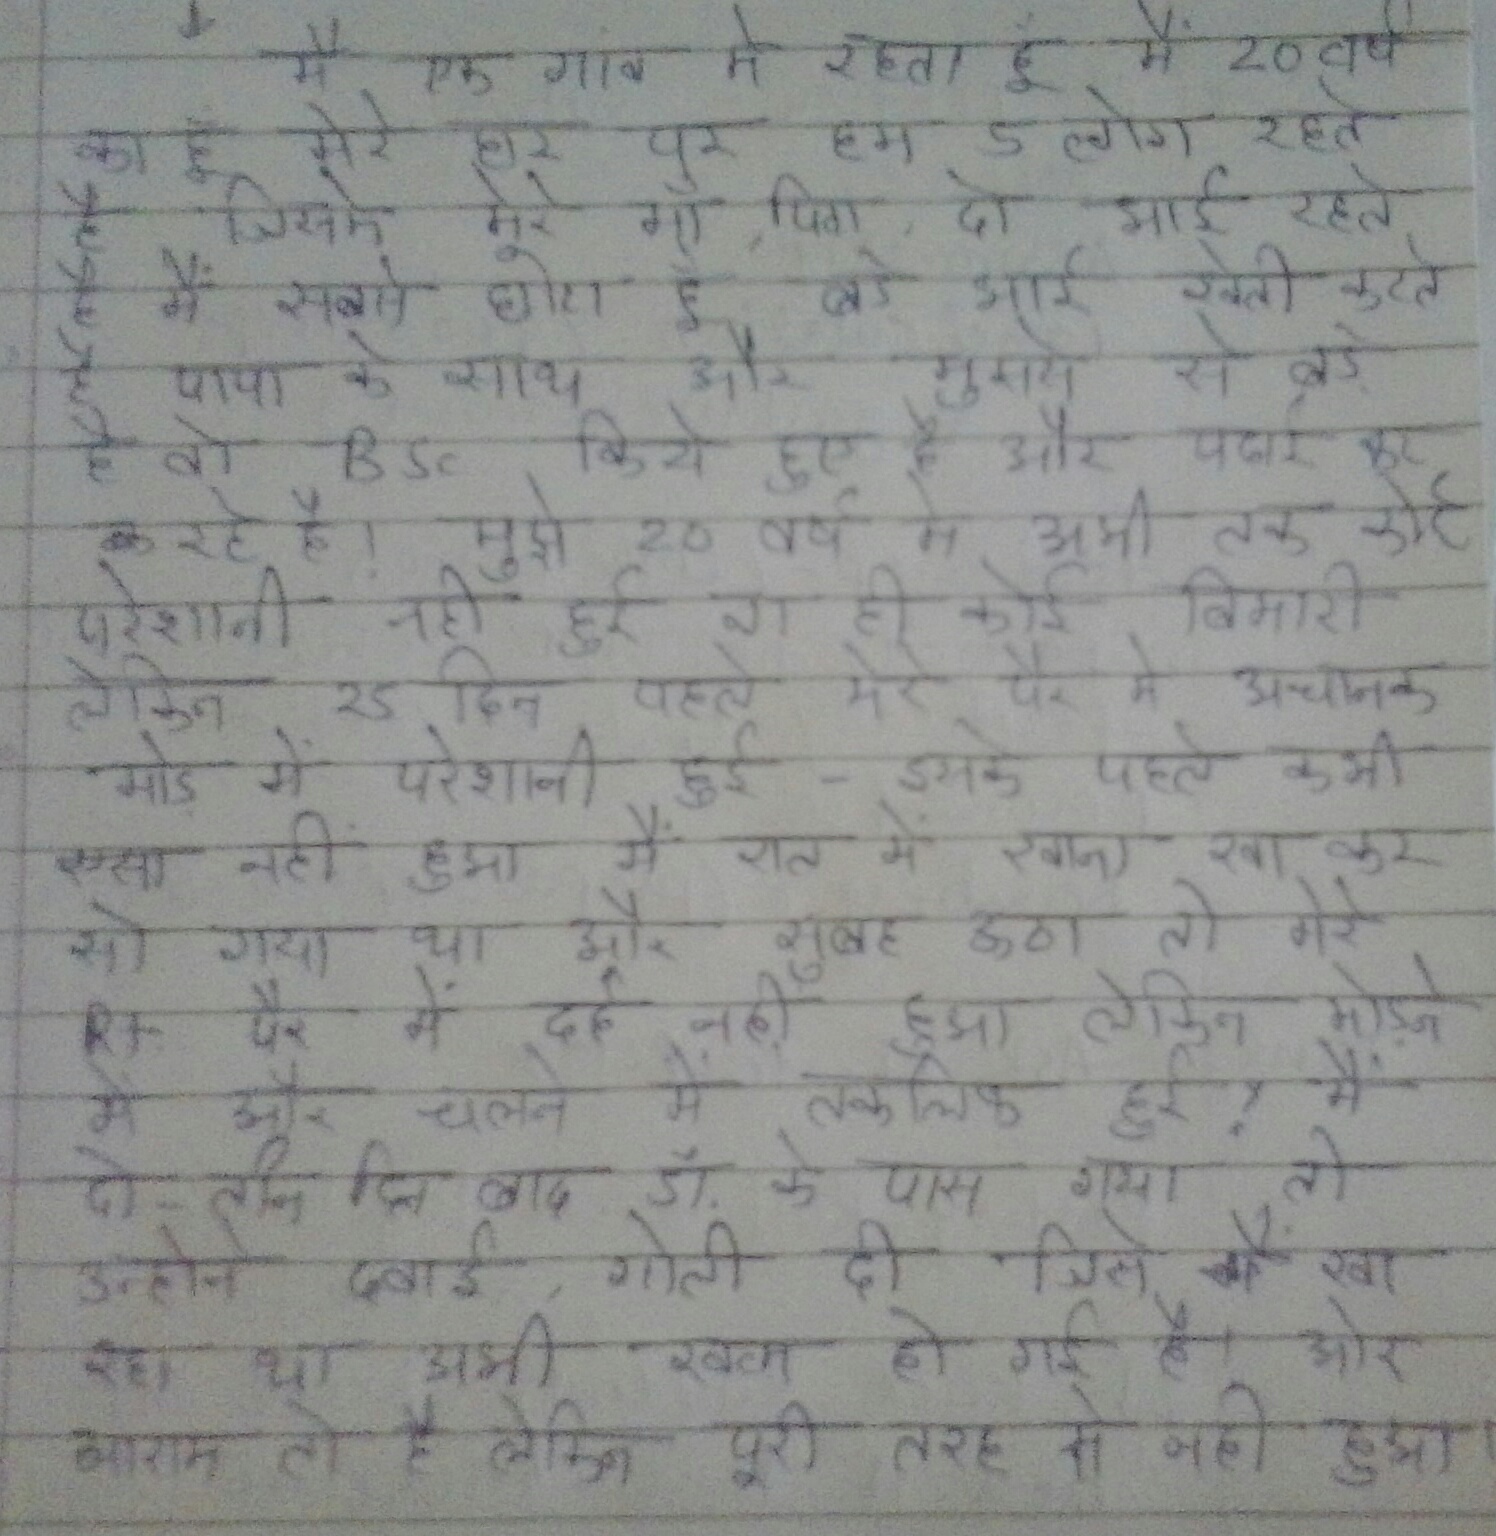 मै एक गांव मे रहता हूं मैं 20 वर्ष
का हूं मेरे घर पर हम 5 लोग रहते
है जिसमे मेरे माँ, पिता, दो भाई रहते
है मैं सबसे छोटा हूं बडे भाई खेती करते
है पापा के साथ और मुझसे से बडे
है वो BSc किये हुए है और पढाई कर
क रहे है। मुझे 20 वर्ष मे अभी तक कोई
परेशानी नही हुई ना ही कोई बिमारी
लेकिन 25 दिन पहले मेरे पैर मे अचानक
मोड में परेशानी हुई - इसके पहले कभी
एसा नहीं हुआ मैं रात में खाना खा कर
सो गया था और सुबह ऊठा तो मेरे
Rt पैर में दर्द नही हुआ लेकिन मोडने
मे और चलने में तकलिफ हुई? मैं
दो-तीन दिन बाद डॉ. के पास गया तो
उन्होने दवाई, गोली दी जिसे मैं खा
रहा था अभी खत्म हो गई है। और
आराम तो है लेकिन पूरी तरह से नही हुआ।